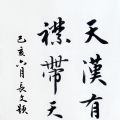 天漢有
襟帶天
己亥六月長文穎